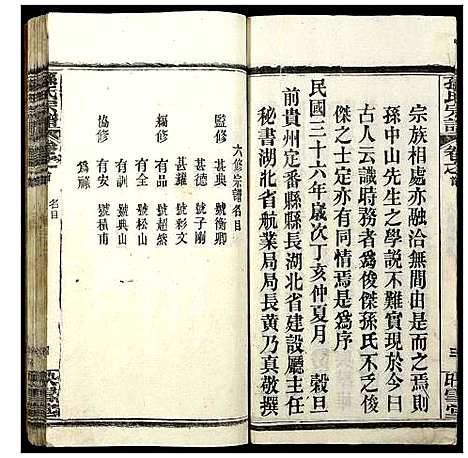 宗族相處亦融洽無間由是而之焉則
孫中山先生之學説不難實現於今日
古人云識時務者為俊傑孫氏不乏俊
傑之士定亦有同情焉是為序
民國三十六年歲次丁亥仲夏月 穀旦
前貴州定番縣縣長湖北省建設廳主任
秘書湖北省航業局局長黃乃真敬撰
孫氏宗譜
六修宗譜名目
監修 甚典 號衡卿
甚德 號子南
甚鑵 號彩文
編修 有品 號超級
有全 號松山
協修 有前 號典山
有安 號積甫
為祿
孫氏宗譜
名目